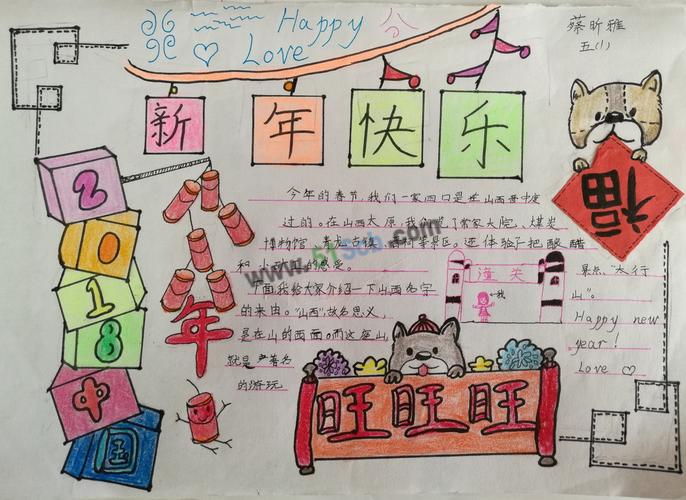 Happy
Love
蔡昕雅
五(1)
新年快乐
福
2018中国
年
今年的春节,我们一家四口是在山西
过的。在山西太原,我们
煤炭
博物馆
青龙古镇
景区。还体验了把酿醋
和
的感受。
下面我给大家介绍一下山西名字
的来由。"山西",故名思义,
是在山的西面。而这座山
就是
著名
的游玩
景点"太行
山"。
Happy new
year!
Love
潼关
我
旺旺旺